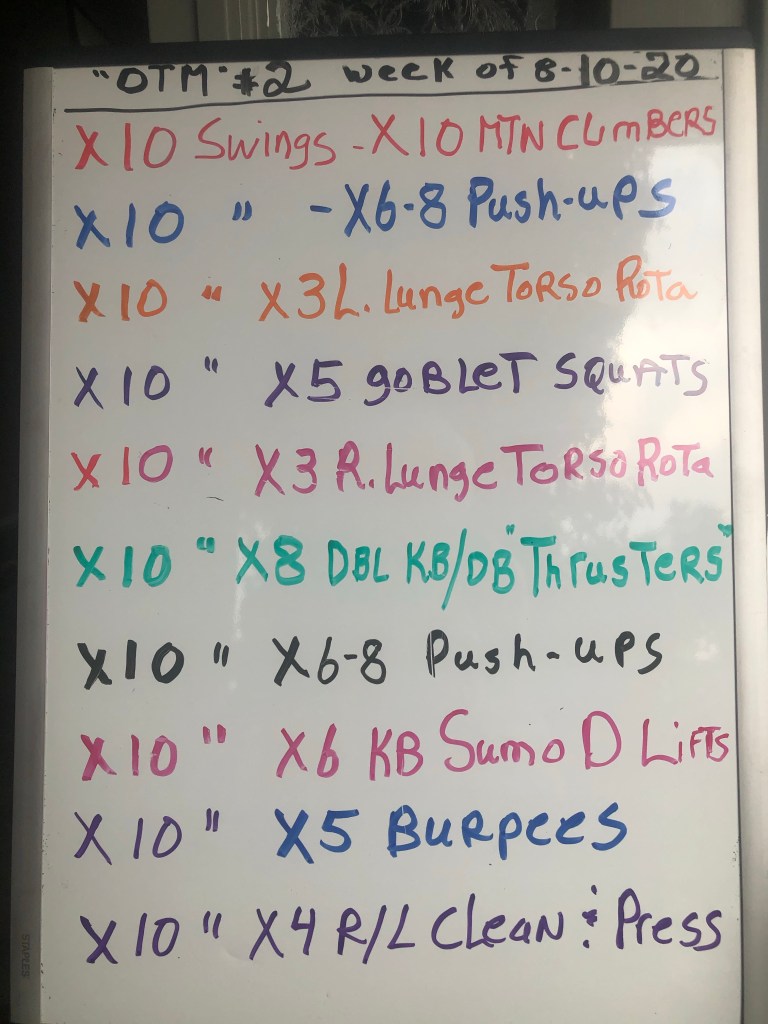 "OTM" #2 week of 8-10-20
X10 Swings - X10 MTN CLimBERS
X10 " - X6-8 Push-ups
X10 " X3 L. Lunge TORSO Rota
X10 " X5 goBLeT SQuATS
X10 " X3 R. Lunge TORSO RoTa
X10 " X8 DBL KB/DB "ThrusTeRS"
X10 " X6-8 Push-ups
X10 " X6 KB Sumo D LiFTS
X10 " X5 BuRpees
X10 " X4 R/L CleaN & Press
STAPLES